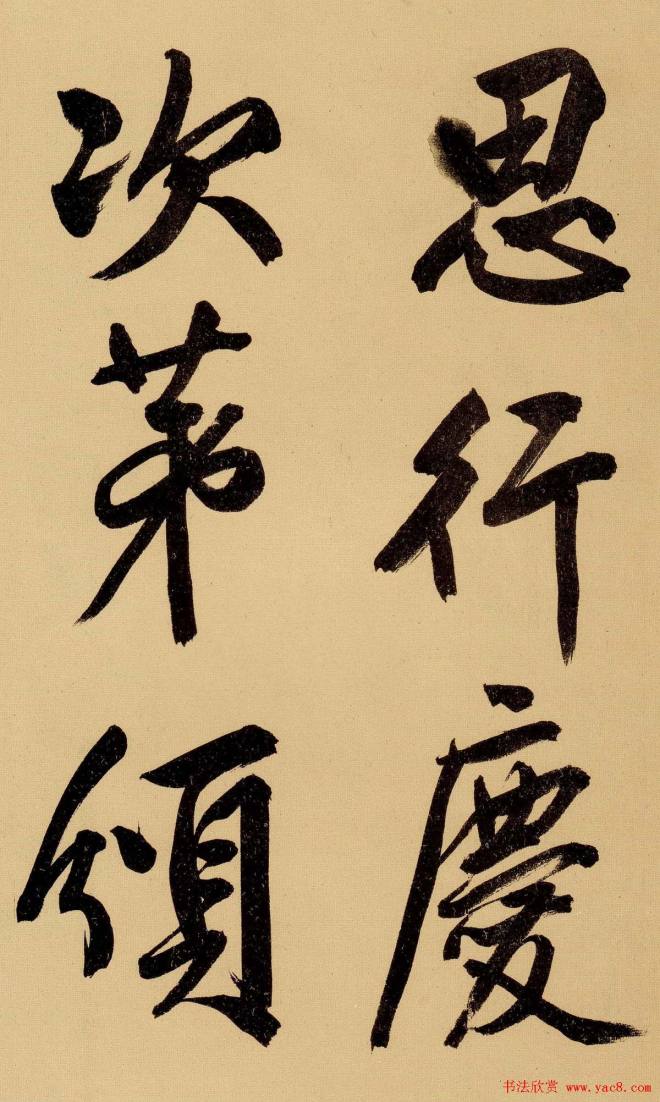 思行慶
次第頒
书法欣赏 www.yac8.com